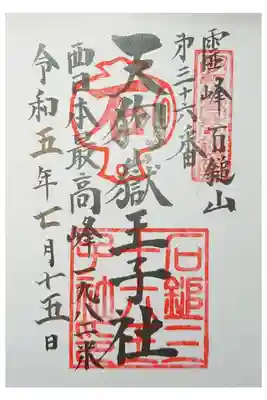 靈峰石鎚山
第三十六番
天狗嶽王子社
西日本最高峰一九八二米
令和五年七月十五日
石鎚三